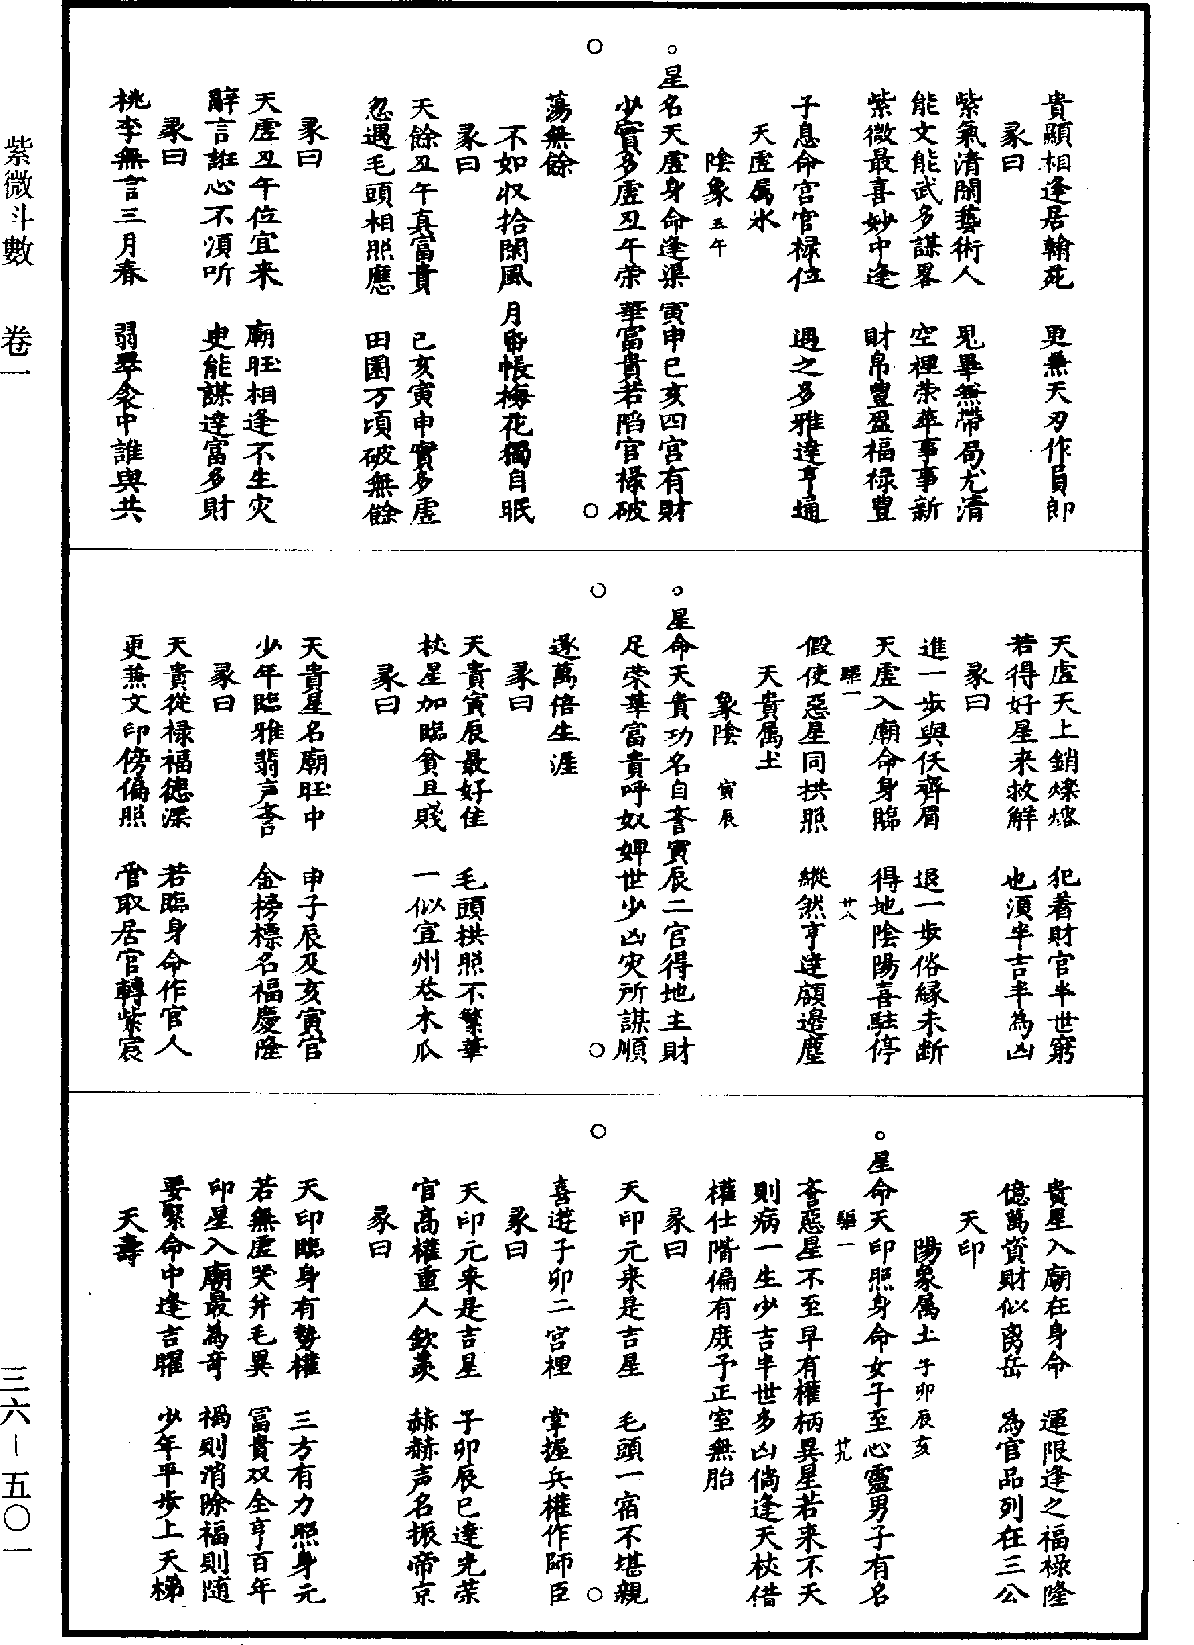 貴顯相逢居翰苑　更兼天刃作員郎
彖曰
紫氣清閑藝術人　鬼畢無帶局尤清
能文能武多謀畧　空裡荣華事事新
紫微最喜妙中逢　財帛豐盈福禄豊
子息命宫官禄位　遇之多雅達亨通
天虚属水
陰象丑午
星名天虚身命逢渠寅申巳亥四宫有財
少實多虚丑午荣華富貴若陷官禄破
蕩無餘
不如収拾閑風月帋帳梅花獨自眠
彖曰
天餘丑午真富貴　已亥寅申實多虚
忽遇毛頭相照應　田園万頃破無餘
彖曰
天虚丑午位宜来　廟旺相逢不生灾
辭言誑心不湏听　更能謀達富多財
彖曰
桃李無言三月春　翡翠衾中誰與共
天虚天上銷燦熔　犯着財官半世窮
若得好星来救解　也湏半吉半為凶
彖曰
進一歩與仸齊眉　退一歩俗縁未断
天虚入廟命身臨　得地陰陽喜駐停
驅一　廿八
假使惡星同拱照　縱然亨達頋邉塵
天貴属土
象陰　寅辰
星命天貴功名自誊寅辰二官得地主財
足荣華富貴呼奴婢世少凶灾所謀順
遂萬倍生涯
彖曰
天貴寅辰最好佳　毛頭拱照不繁華
杖星加臨貧且賤　一似宜州苍木瓜
彖曰
天貴星名廟旺中　申子辰及亥寅官
少年臨雅翡声誊　金榜標名福慶隆
彖曰
天貴從禄福徳深　若臨身命作官人
更兼文印傍偏照　管取居官轉紫宸
貴星入廟在身命　運限逢之福禄隆
億萬資財似喬岳　為官品列在三公
天印
陽象属土　子卯辰亥
星命天印照身命女子至心靈男子有名
驅一　廿九
誊惡星不至早有權柄異星若来不夭
則病一生少吉半世多凶倘逢天杖借
權仕階偏有庶子正室無胎
彖曰
天印元来是吉星　毛頭一宿不堪親
喜逰子卯二宫裡　掌握兵權作師臣
彖曰
天印元来是吉星　子卯辰巳達光荣
官高權重人欽羨　赫赫声名振帝京
彖曰
天印臨身有勢權　三方有力照身元
若無虚哭并毛異　冨貴双全亨百年
印星入廟最為奇　禍則消除福則随
要緊命中逢吉曜　少年平歩上天梯
天壽
紫微斗數　卷一
三六－五〇一